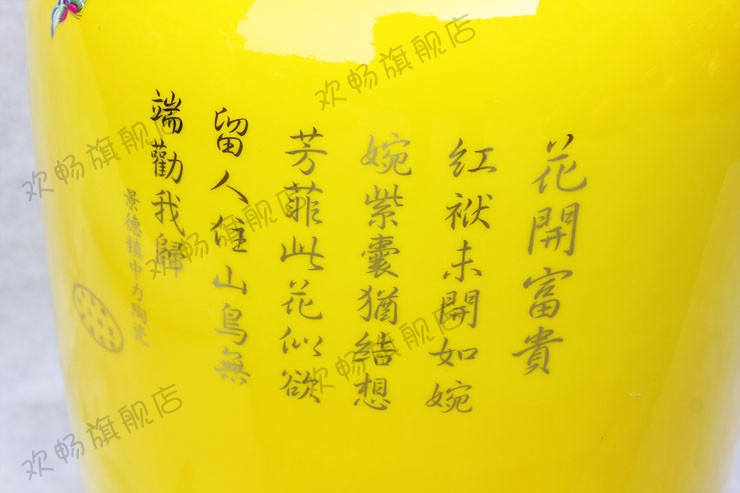 花開富貴
红袱未開如婉
婉紫囊猶結想
芳菲此花似欲
留人住山鳥無
端勸我歸
景德镇中方陶瓷
欢畅旗舰店
欢畅旗舰店
欢畅旗舰店
欢畅旗舰店
欢畅旗舰店